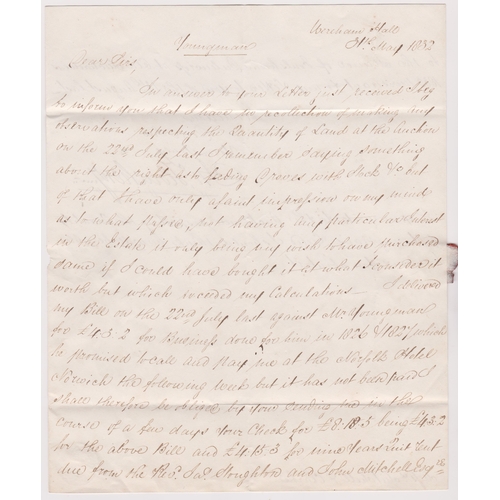 Wereham Hall
31st May 1832
Youngman
Dear Sirs,
In answer to your Letter just received I beg
to inform you that I have no recollection of making any
observations respecting the Quantity of Land at the Auction
on the 22nd July last I remember saying something
about the right as to feeding Greaves with Stock &c but
of that I have only a faint impression on my mind
as to what passed, not having any particular Interest
in the Estate it only being my wish to have purchased
same if I could have bought it at what I consider it
worth but which exceeded my Calculations I delivered
my Bill on the 22nd July last against Mr Youngman
for £4.3.2 for Business done for him in 1826 & 1827 which
he promised to call and pay me at the Norfolk Hotel
Norwich the following week but it has not been paid I
shall therefore be obliged by your sending me in the
course of a few days your Check for £8.18.5 being £4.3.2
for the above Bill and £4.15.3 for nine Years Quit Rent
due from the Revd. Jas. Stoughton and John Mitchell Esqrs